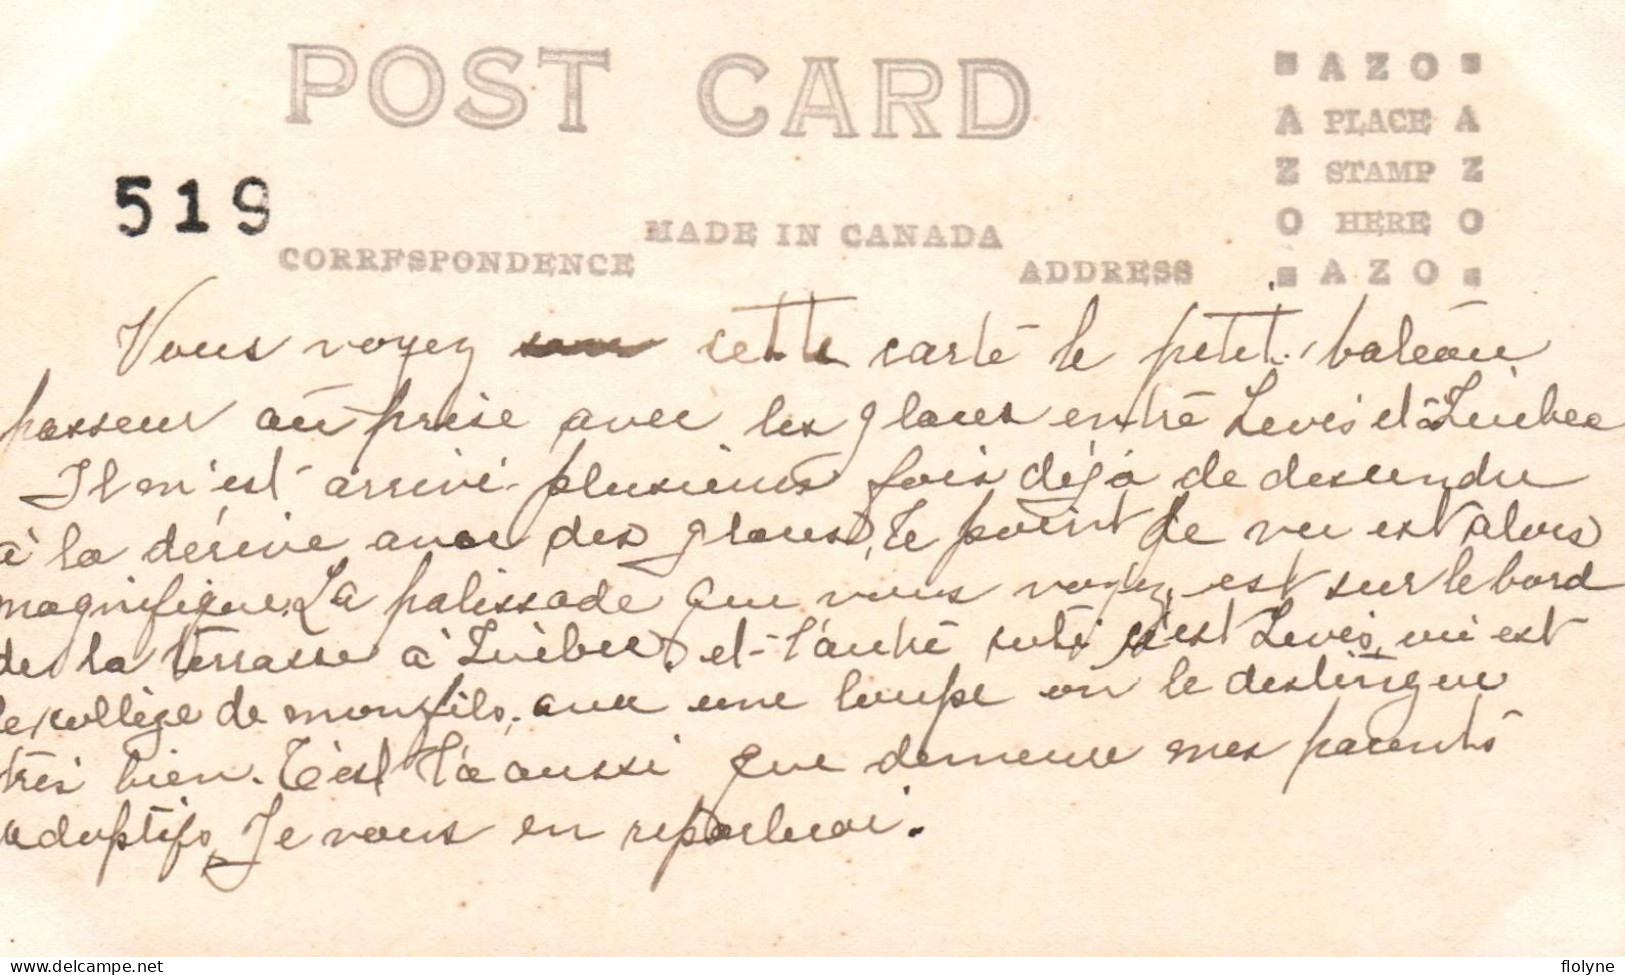 POST CARD
AZO
A PLACE A
Z STAMP Z
O HERE O
AZO
519
MADE IN CANADA
CORRESPONDENCE
ADDRESS
Vous voyez cette carte le petit bateau
passeur au prise avec les glaces entre Levis et Quebec
Il m'est arrivé plusieurs fois déjà de descendre
à la dérive avec des glaces, Le point de vu est alors
magnifique. La palissade que vous voyez est sur le bord
de la terrasse à Québec, et l'autre coté c'est Levis, ou est
le collège de mon fils, avec une loupe on le destingue
très bien. C'est la aussi que demeure mes parents
adoptifs, Je vous en reparlerai.
Delcampe.net
flolyne